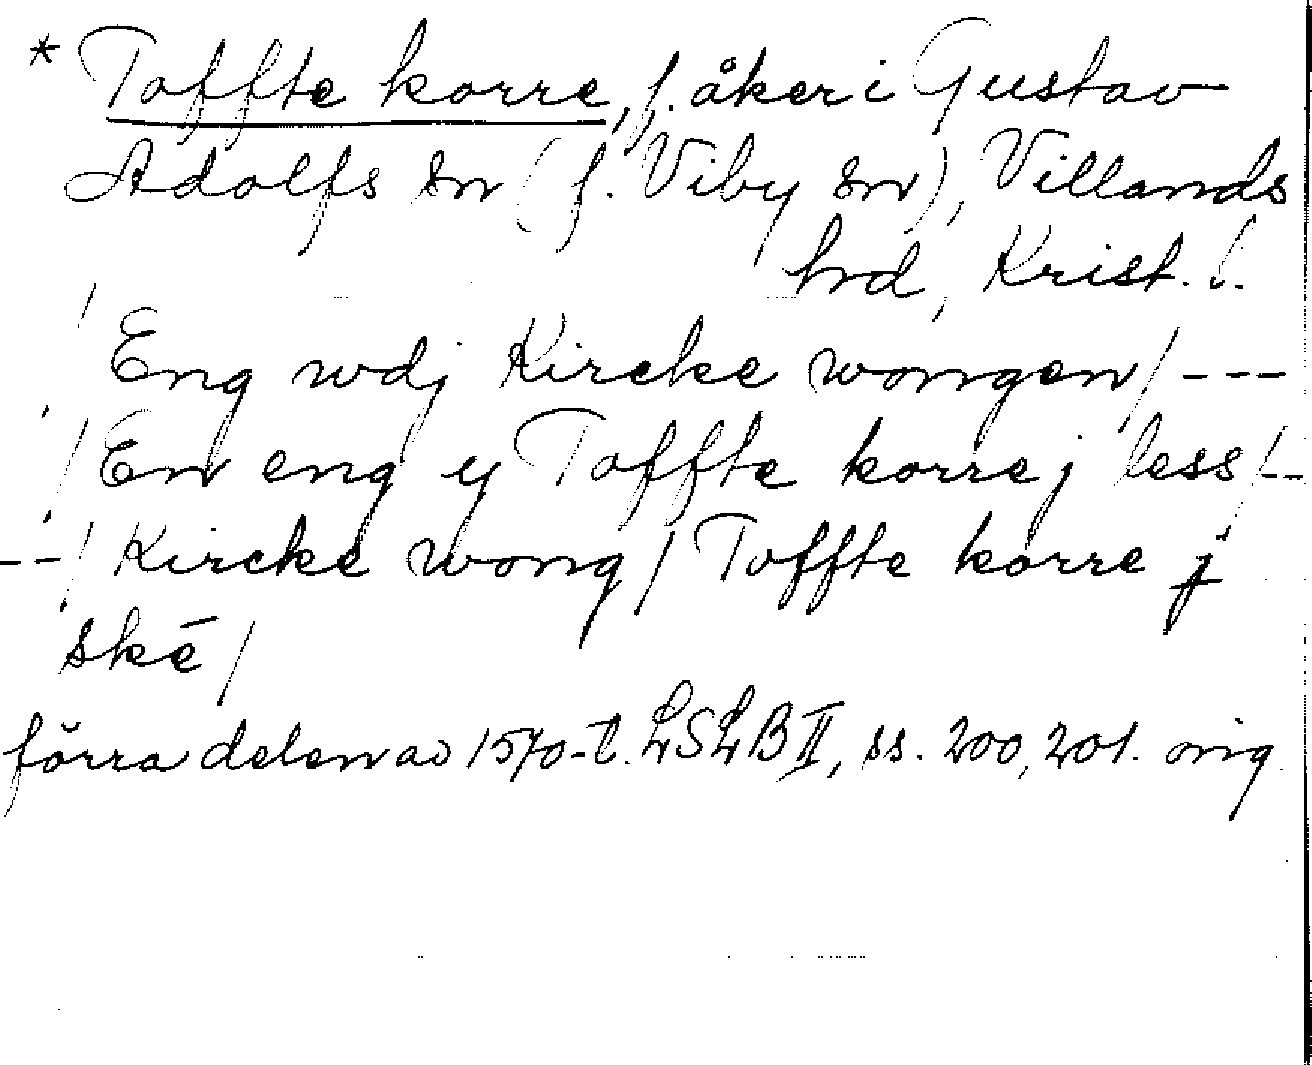 * Toffte korre, f. åker i Gustav
Adolfs sn (f. Viby sn), Villands
hrd, Krist. l.
/ Eng wdj Kircke wongen / ---
/ En eng y Toffte korre j less / -
-- / Kircke wong / Toffte korre j
skē /
förra delen av 1570-t. LSLB II, ss. 200, 201. orig.